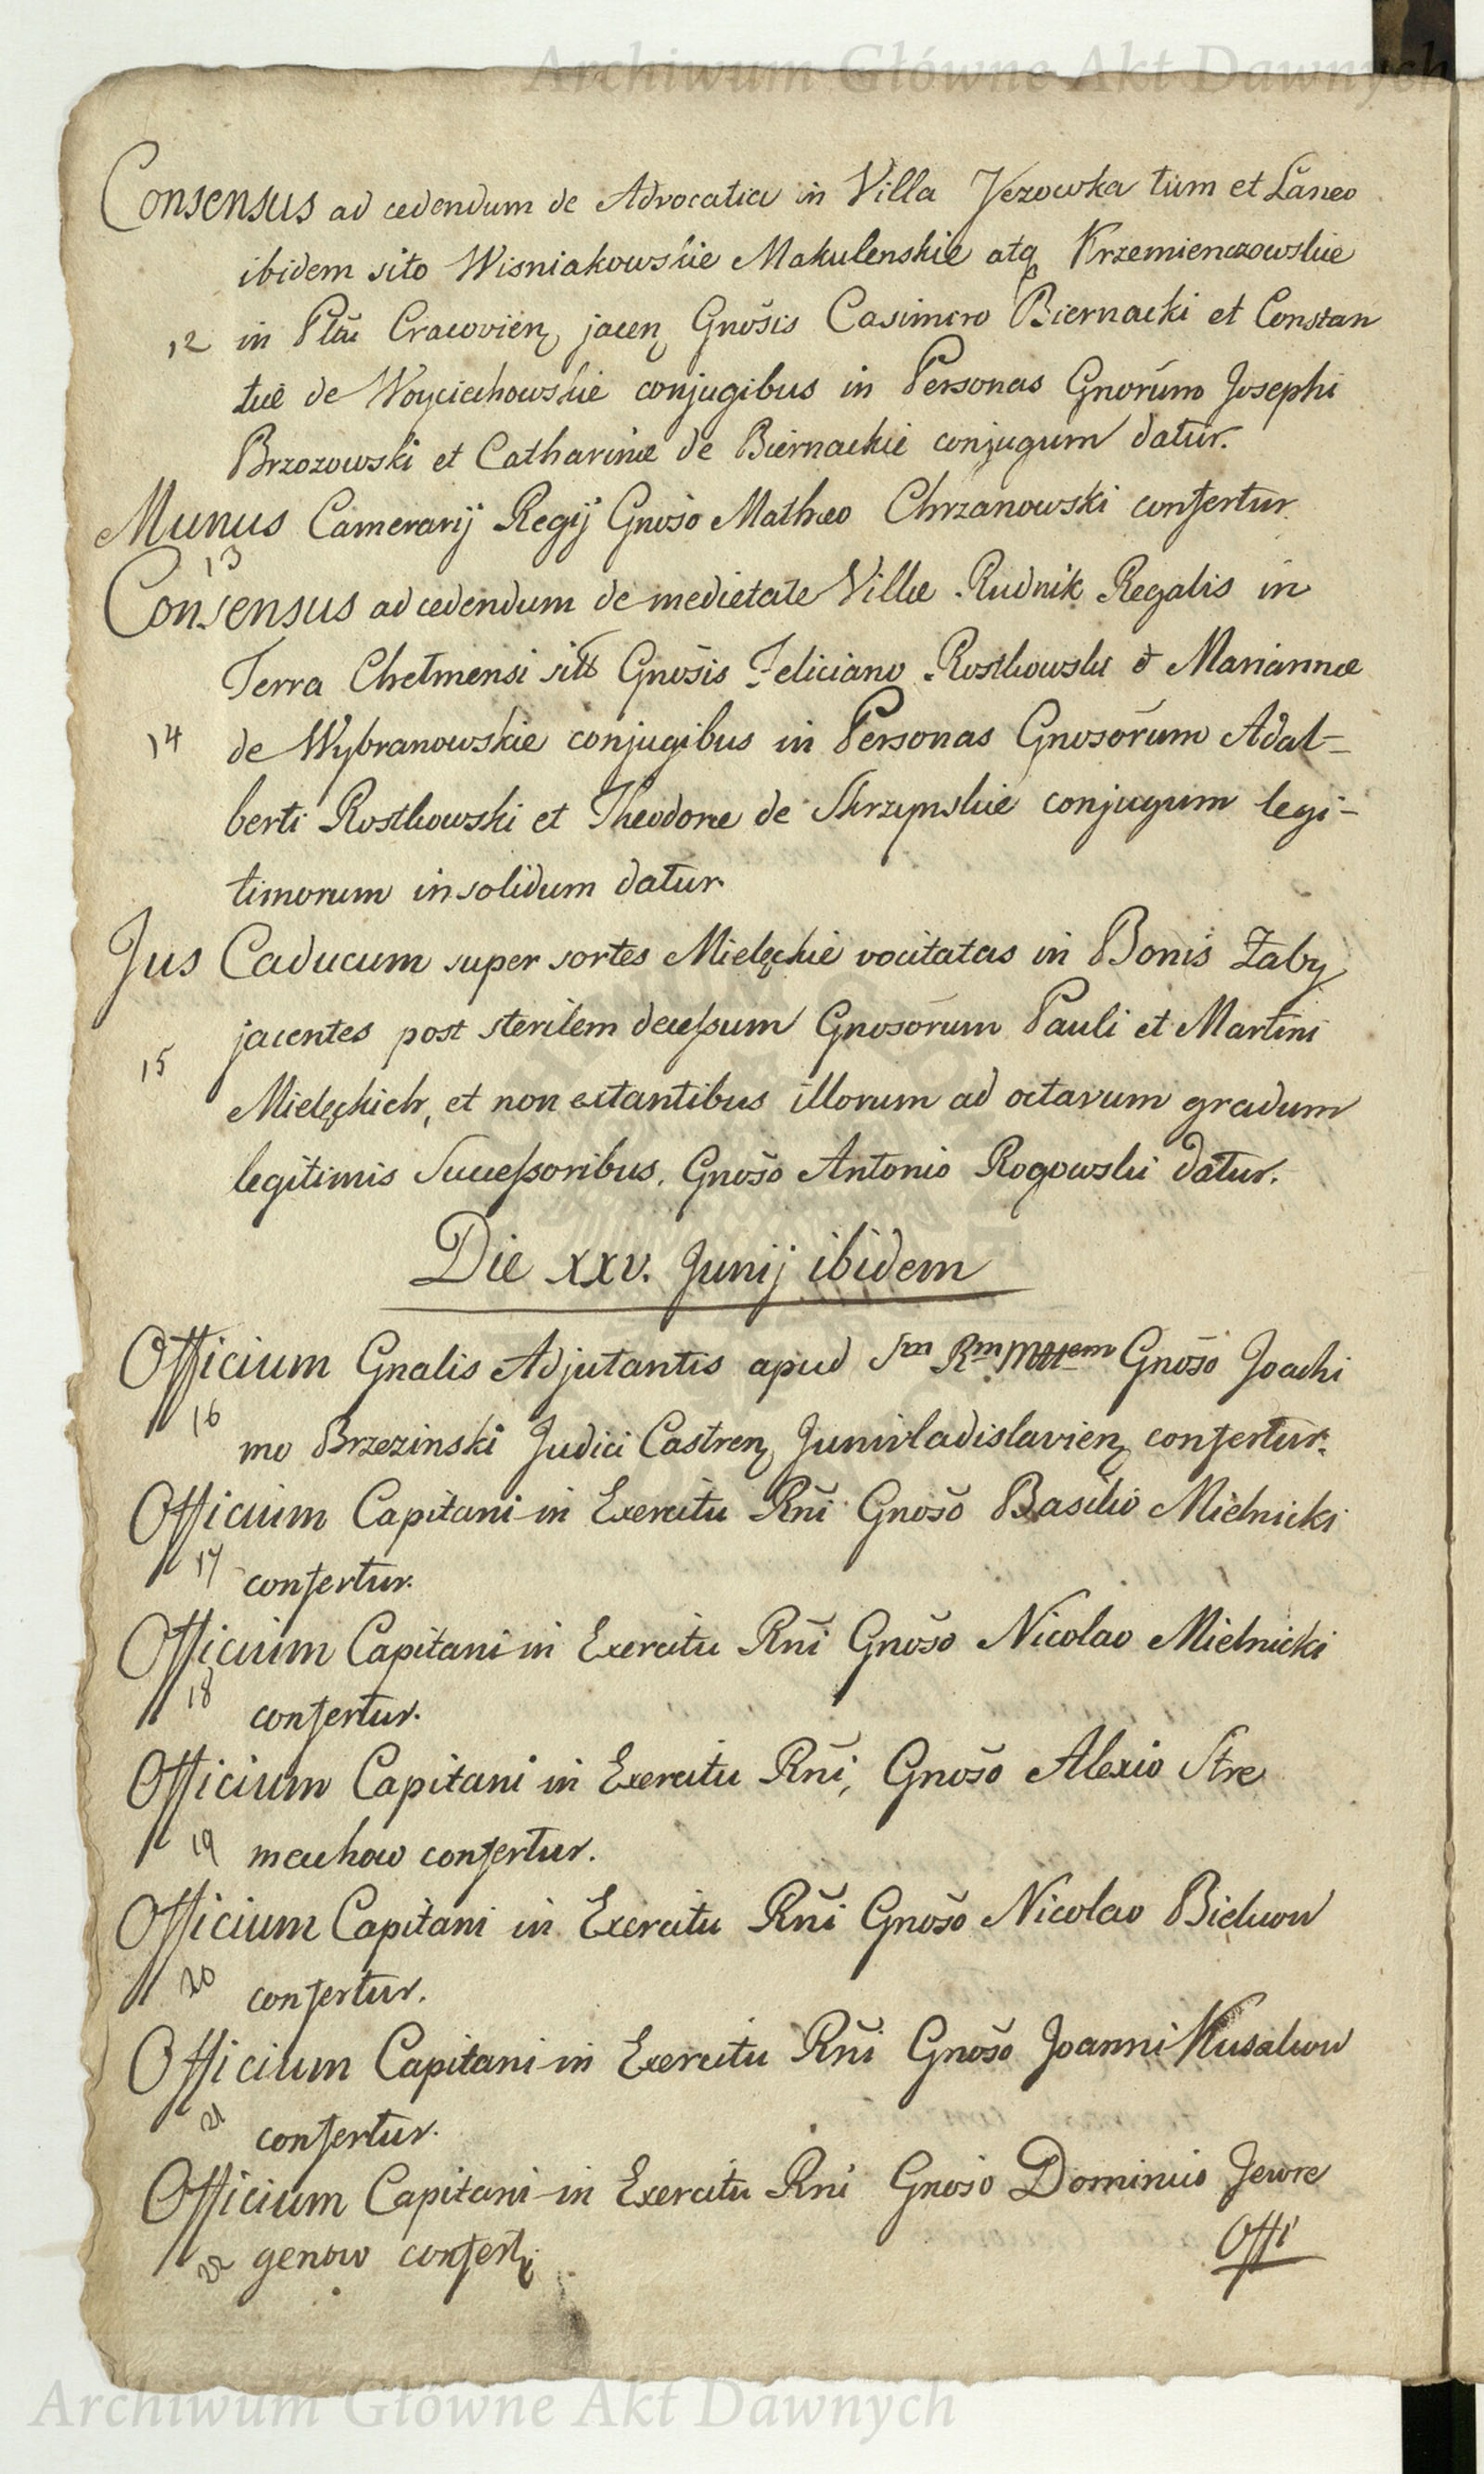 Archiwum Główne Akt Dawnych
Consensus ad cedendum de Advocatia in Villa Jezowka tum et Laneo
ibidem sito Wisniakowskie Makulenskie atq Krzemienczowskie
12 in Pltu Cracovien jacen Gnosis Casimiro Biernacki et Constan
tiæ de Woyciechowskie conjugibus in Personas Gnorum Josephi
Brzozowski et Catharinæ de Biernackie conjugum datur.
Munus Camerarij Regij Gnoso Mathæo Chrzanowski confertur
13
Consensus ad cedendum de medietate Villæ Rudnik Regalis in
Terra Chelmensi Gnosis Feliciano Rostkowski et Mariannæ
14 de Wybranowskie conjugibus in Personas Gnosorum Adal=
berti Rostkowski et Theodoræ de Skrzynskie conjugum legi-
timorum in solidum datur.
Jus Caducum super sortes Mielęckie vocitatas in Bonis Zaby
jacentes post sterilem decessum Gnosorum Pauli et Martini
15
Mielęckich, et non extantibus illorum ad octavum gradum
legitimis Successoribus. Gnoso Antonio Rogowski datur.
Die XXV. Junij ibidem
Officium Gnalis Adjutantis apud Sm Rm Mttem Gnoso Joachi
16 mo Brzezinski Judici Castren Junivladislavien confertur.
Officium Capitani in Exercitu Rni Gnoso Basilio Mielnicki
17 confertur.
Officium Capitani in Exercitu Rni Gnoso Nicolao Mielnicki
18 confertur.
Officium Capitani in Exercitu Rni, Gnoso Alexio Stre
19 meuhow confertur.
Officium Capitani in Exercitu Rni Gnoso Nicolao
20 confertur.
Officium Capitani in Exercitu Rni Gnoso Joanni Kusakow
21 confertur.
Officium Capitani in Exercitu Rni Gnoso Dominico Jewre
22 genow confert
Offi
Archiwum Główne Akt Dawnych